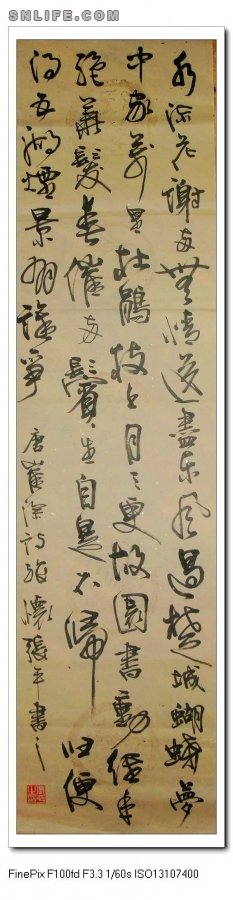 SNLIFE.COM
水流花謝两無情送盡东风過楚城蝴蝶夢
中家萬里杜鵑枝上月三更故園書動经年
絶華髮春催两鬢生自是不歸归便
得五湖煙景有誰爭
唐崔涂诗旅懷張平書之
FinePix F100fd F3.3 1/60s ISO13107400